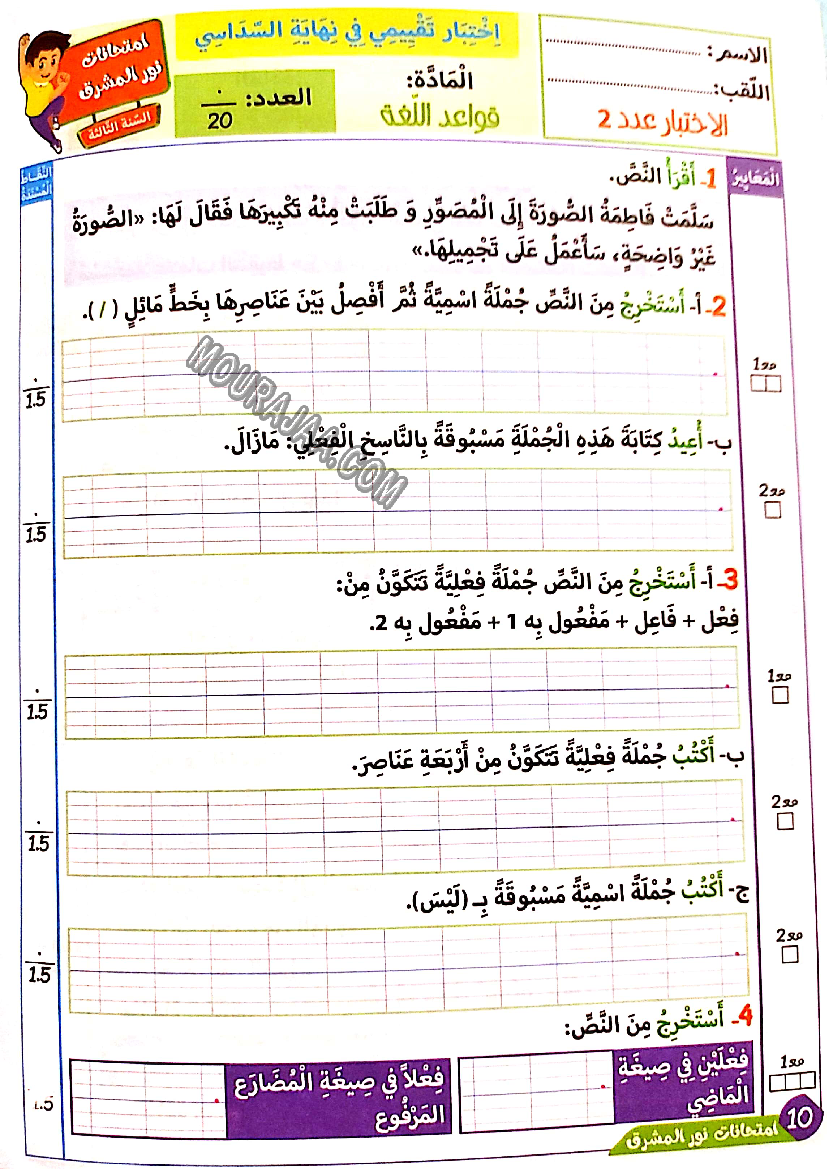 الاسم: ..............................
اللّقب: ..............................
الاختبار عدد 2
اِخْتِبَار تَقْيِيمِي فِي نِهَايَةِ السّدَاسِي
الْمَادَّة:
قواعد اللّغة
العدد: . / 20
امتحانات
نور المشرق
السّنة الثّالثة
الْمَعَايِيرُ
النِّقَاط
الْمُسْنَدَة
1- أَقْرَأُ النَّصَّ.
سَلَّمَتْ فَاطِمَةُ الصُّورَةَ إِلَى الْمُصَوِّرِ وَ طَلَبَتْ مِنْهُ تَكْبِيرَهَا فَقَالَ لَهَا: «الصُّورَةُ
غَيْرُ وَاضِحَةٍ، سَأَعْمَلُ عَلَى تَجْمِيلِهَا.»
2- أ- أَسْتَخْرِجُ مِنَ النَّصِّ جُمْلَةً اسْمِيَّةً ثُمَّ أَفْصِلُ بَيْنَ عَنَاصِرِهَا بِخَطٍّ مَائِلٍ ( / ).
مع1
. / 1.5
MOURAJAA.COM
ب- أُعِيدُ كِتَابَةَ هَذِهِ الْجُمْلَةِ مَسْبُوقَةً بِالنَّاسِخِ الْفِعْلِي: مَازَالَ.
مع2
. / 1.5
3- أ- أَسْتَخْرِجُ مِنَ النَّصِّ جُمْلَةً فِعْلِيَّةً تَتَكَوَّنُ مِنْ:
فِعْل + فَاعِل + مَفْعُول بِه 1 + مَفْعُول بِه 2.
مع1
. / 1.5
ب- أَكْتُبُ جُمْلَةً فِعْلِيَّةً تَتَكَوَّنُ مِنْ أَرْبَعَةِ عَنَاصِرَ.
مع2
. / 1.5
ج- أَكْتُبُ جُمْلَةً اسْمِيَّةً مَسْبُوقَةً بِـ (لَيْسَ).
مع2
. / 1.5
4- أَسْتَخْرِجُ مِنَ النَّصِّ:
مع1
فِعْلَيْنِ فِي صِيغَةِ
الْمَاضِي
فِعْلاً فِي صِيغَةِ الْمُضَارَع
المَرْفُوع
10
امتحانات نور المشرق